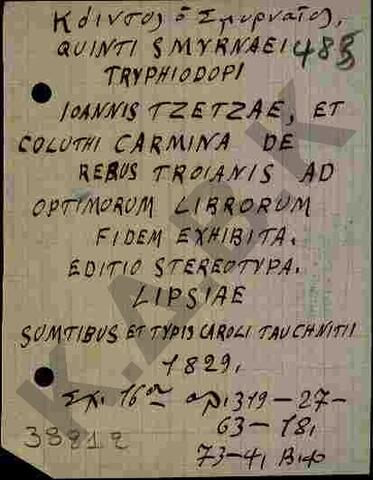 Κόιντος ὁ Σμυρναῖος.
QUINTI SMYRNAEI
TRYPHIODOPI
IOANNIS TZETZAE, ET
COLUTHI CARMINA DE
REBUS TROIANIS AD
OPTIMORUM LIBRORUM
FIDEM EXHIBITA.
EDITIO STEREOTYPA.
LIPSIAE
SUMTIBUS ET TYPIS CAROLI TAUCHNITII
1829.
Σχ. 16ον 319-27-
63-18,
73-4,
K.A.B.K